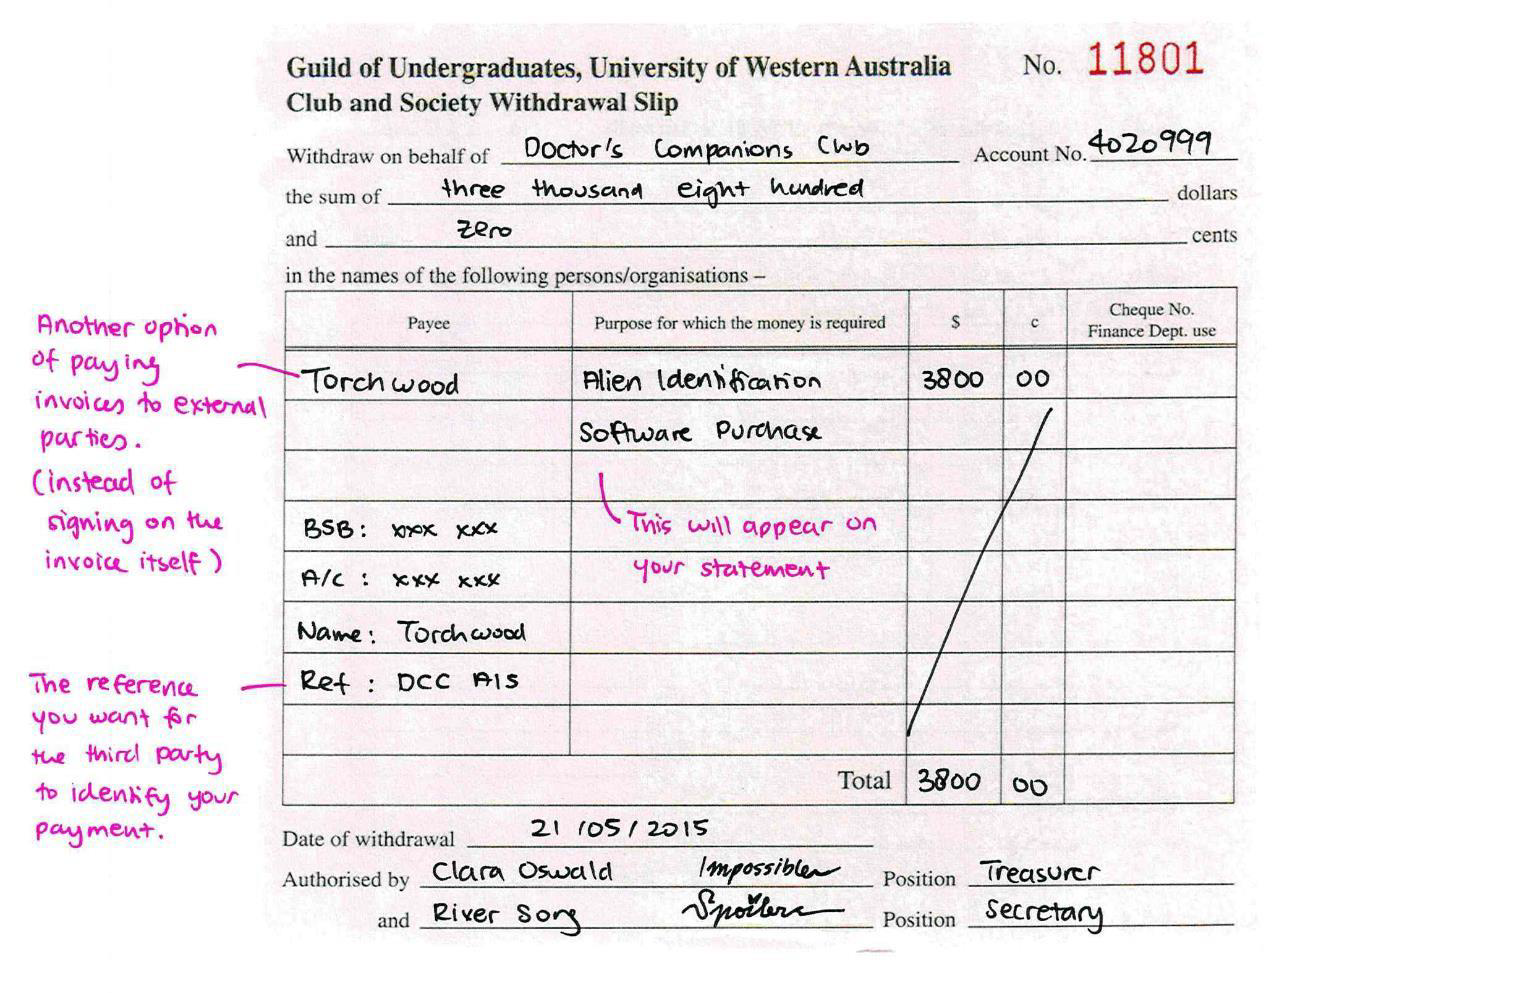 Guild of Undergraduates, University of Western Australia No. 11801
Club and Society Withdrawal Slip
Withdraw on behalf of Doctor's Companions Club Account No. 4020999
the sum of three thousand eight hundred dollars
and zero cents
in the names of the following persons/organisations –
Payee Purpose for which the money is required $ c Cheque No. Finance Dept. use
Torchwood Alien Identification 3800 00
Software Purchase
BSB: xxx xxx
A/c : xxx xxx
Name: Torchwood
Ref : DCC A15
Total 3800 00
Date of withdrawal 21/05/2015
Authorised by Clara Oswald Impossible Position Treasurer
and River Song Spoilers Position Secretary
Another option
of paying
invoices to external
parties.
(instead of
signing on the
invoice itself)
This will appear on
your statement
The reference
you want for
the third party
to identify your
payment.